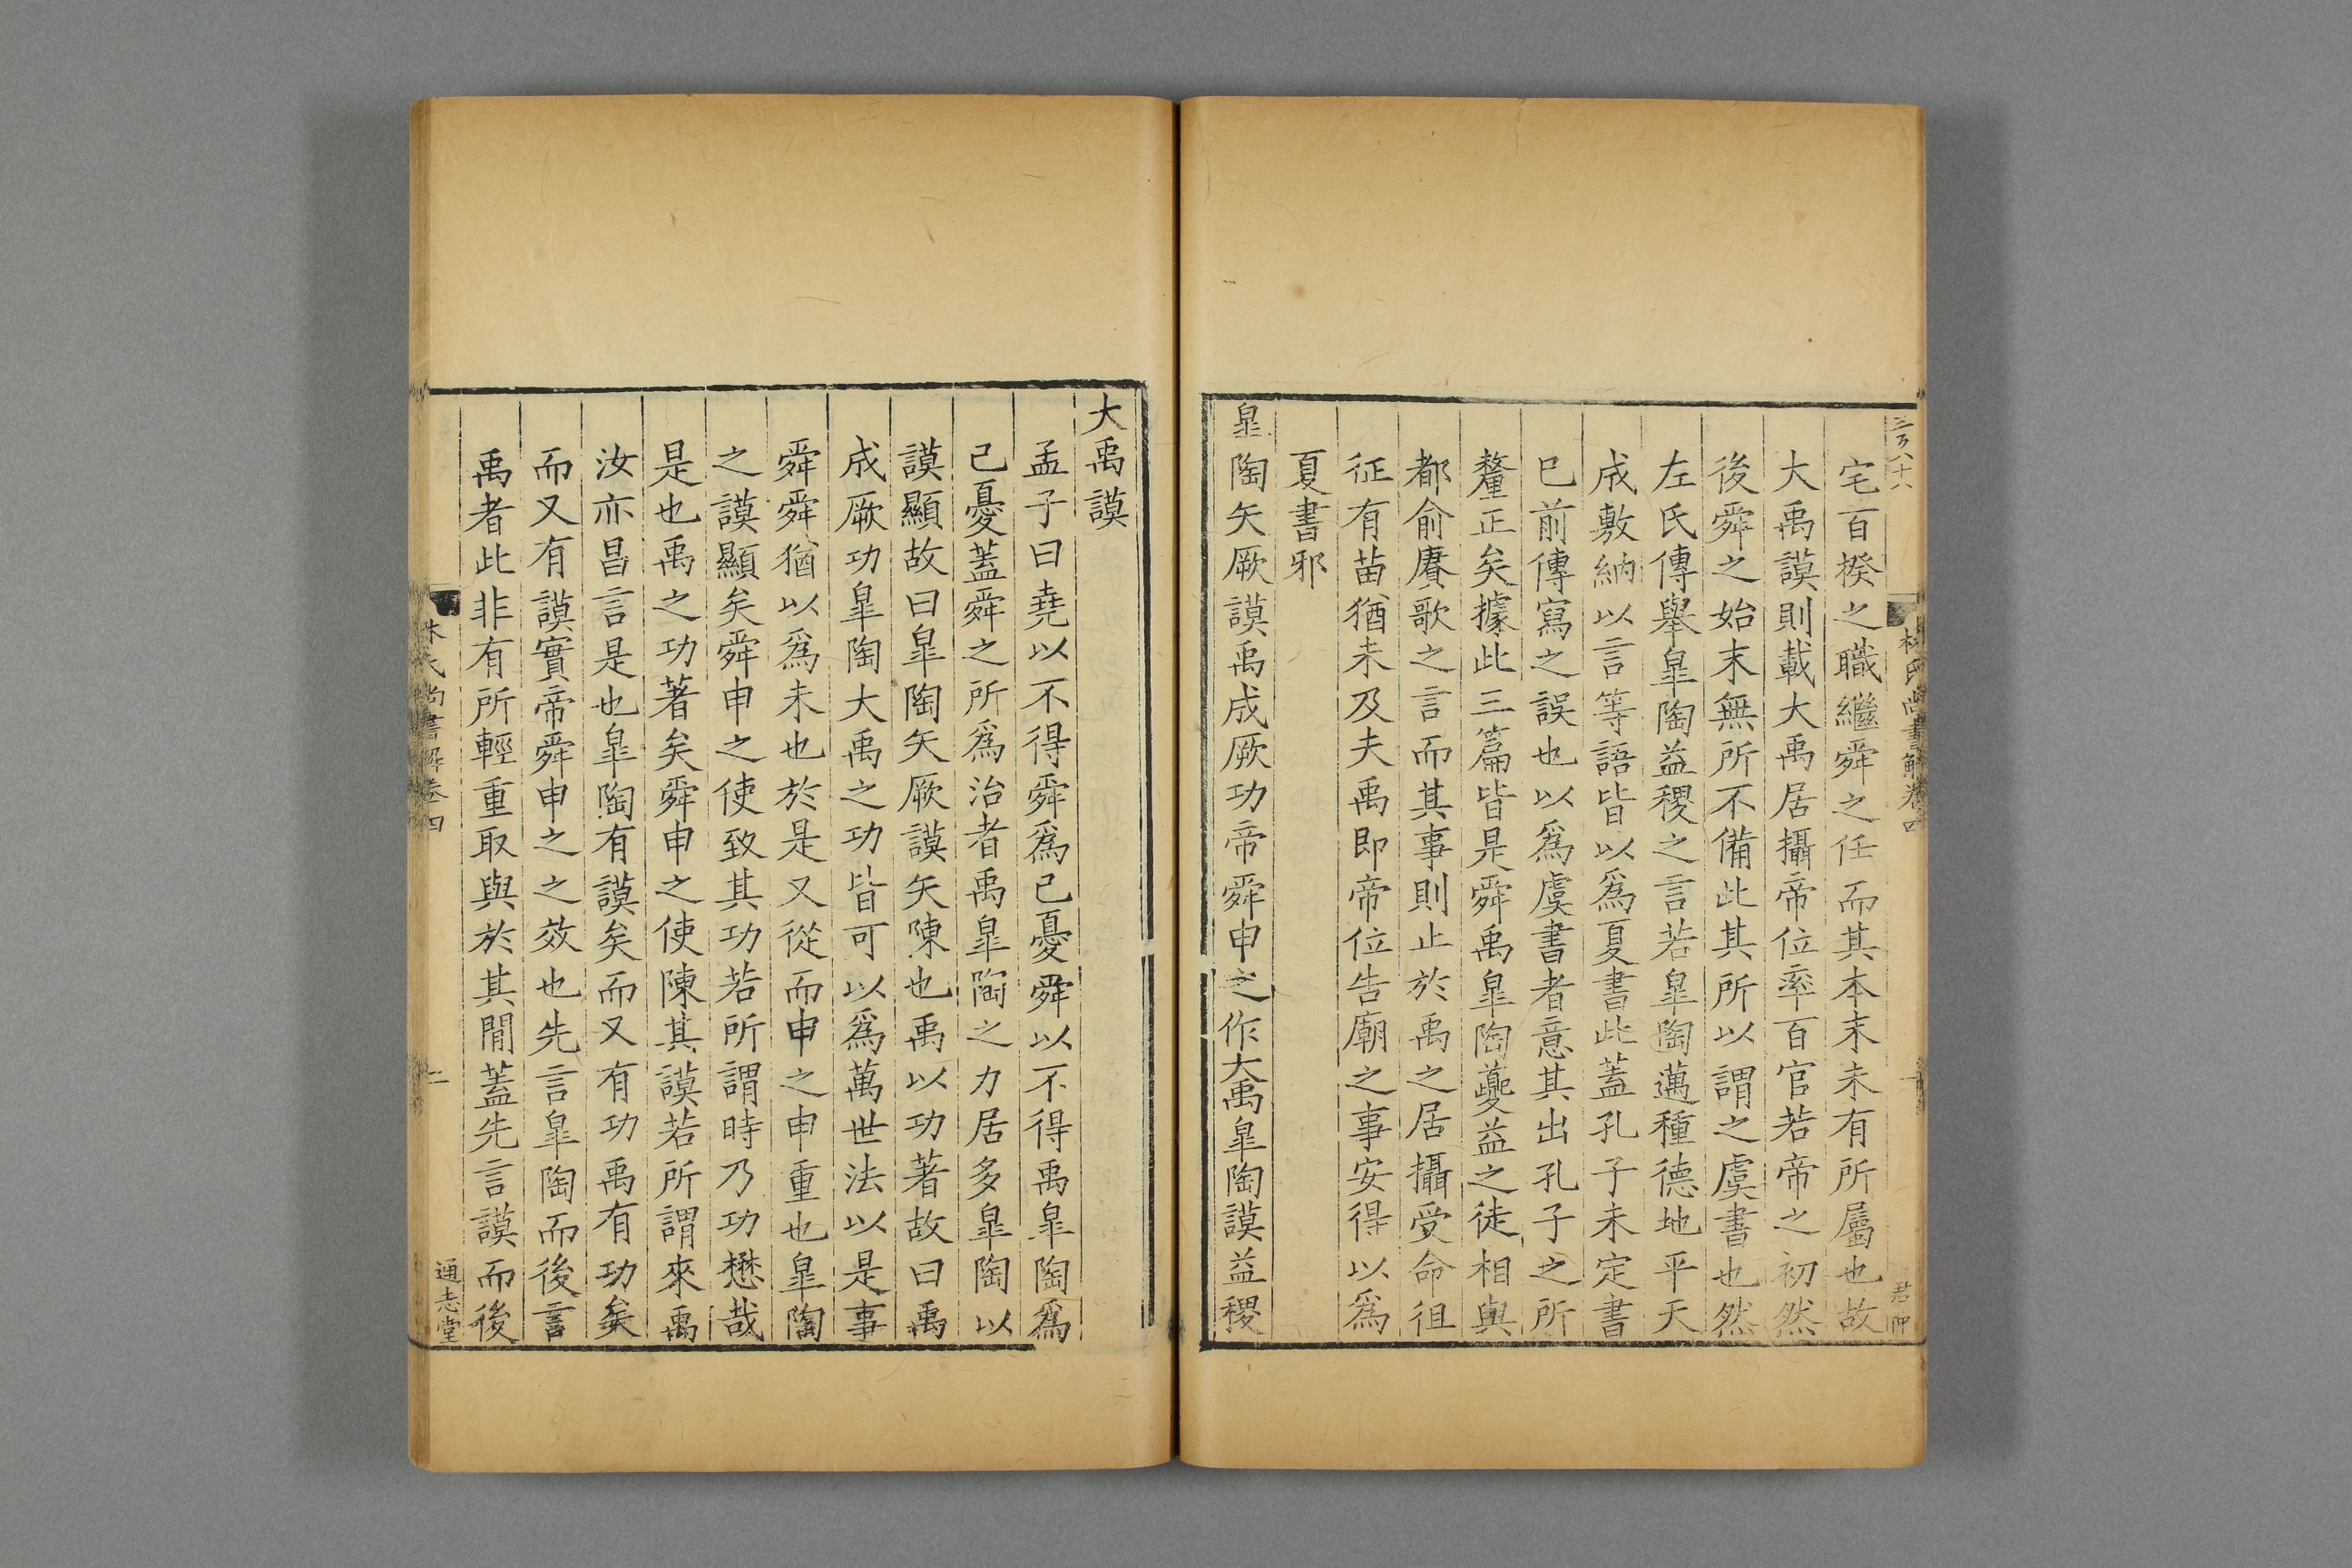 三百八十六
林氏尚書解卷四
一
君仲
宅百揆之職繼舜之任而其本末未有所屬也故
大禹謨則載大禹居攝帝位率百官若帝之初然
後舜之始末無所不備此其所以謂之虞書也然
左氏傳舉皐陶益稷之言若皐陶邁種德地平天
成敷納以言等語皆以爲夏書此蓋孔子未定書
已前傳寫之誤也以爲虞書者意其出孔子之所
釐正矣據此三篇皆是舜禹皐陶夔益之徒相與
都俞賡歌之言而其事則止於禹之居攝受命徂
征有苗猶未及夫禹即帝位告廟之事安得以爲
夏書邪
皐陶矢厥謨禹成厥功帝舜申之作大禹皐陶謨益稷
大禹謨
孟子曰堯以不得舜爲己憂舜以不得禹皐陶爲
己憂蓋舜之所爲治者禹皐陶之力居多皐陶以
謨顯故曰皐陶矢厥謨矢陳也禹以功著故曰禹
成厥功皐陶大禹之功皆可以爲萬世法以是事
舜舜猶以爲未也於是又從而申之申重也皐陶
之謨顯矣舜申之使致其功若所謂時乃功懋哉
是也禹之功著矣舜申之使陳其謨若所謂來禹
汝亦昌言是也皐陶有謨矣而又有功禹有功矣
而又有謨實帝舜申之之效也先言皐陶而後言
禹者此非有所輕重取與於其閒蓋先言謨而後
林氏尚書解卷四
二
通志堂